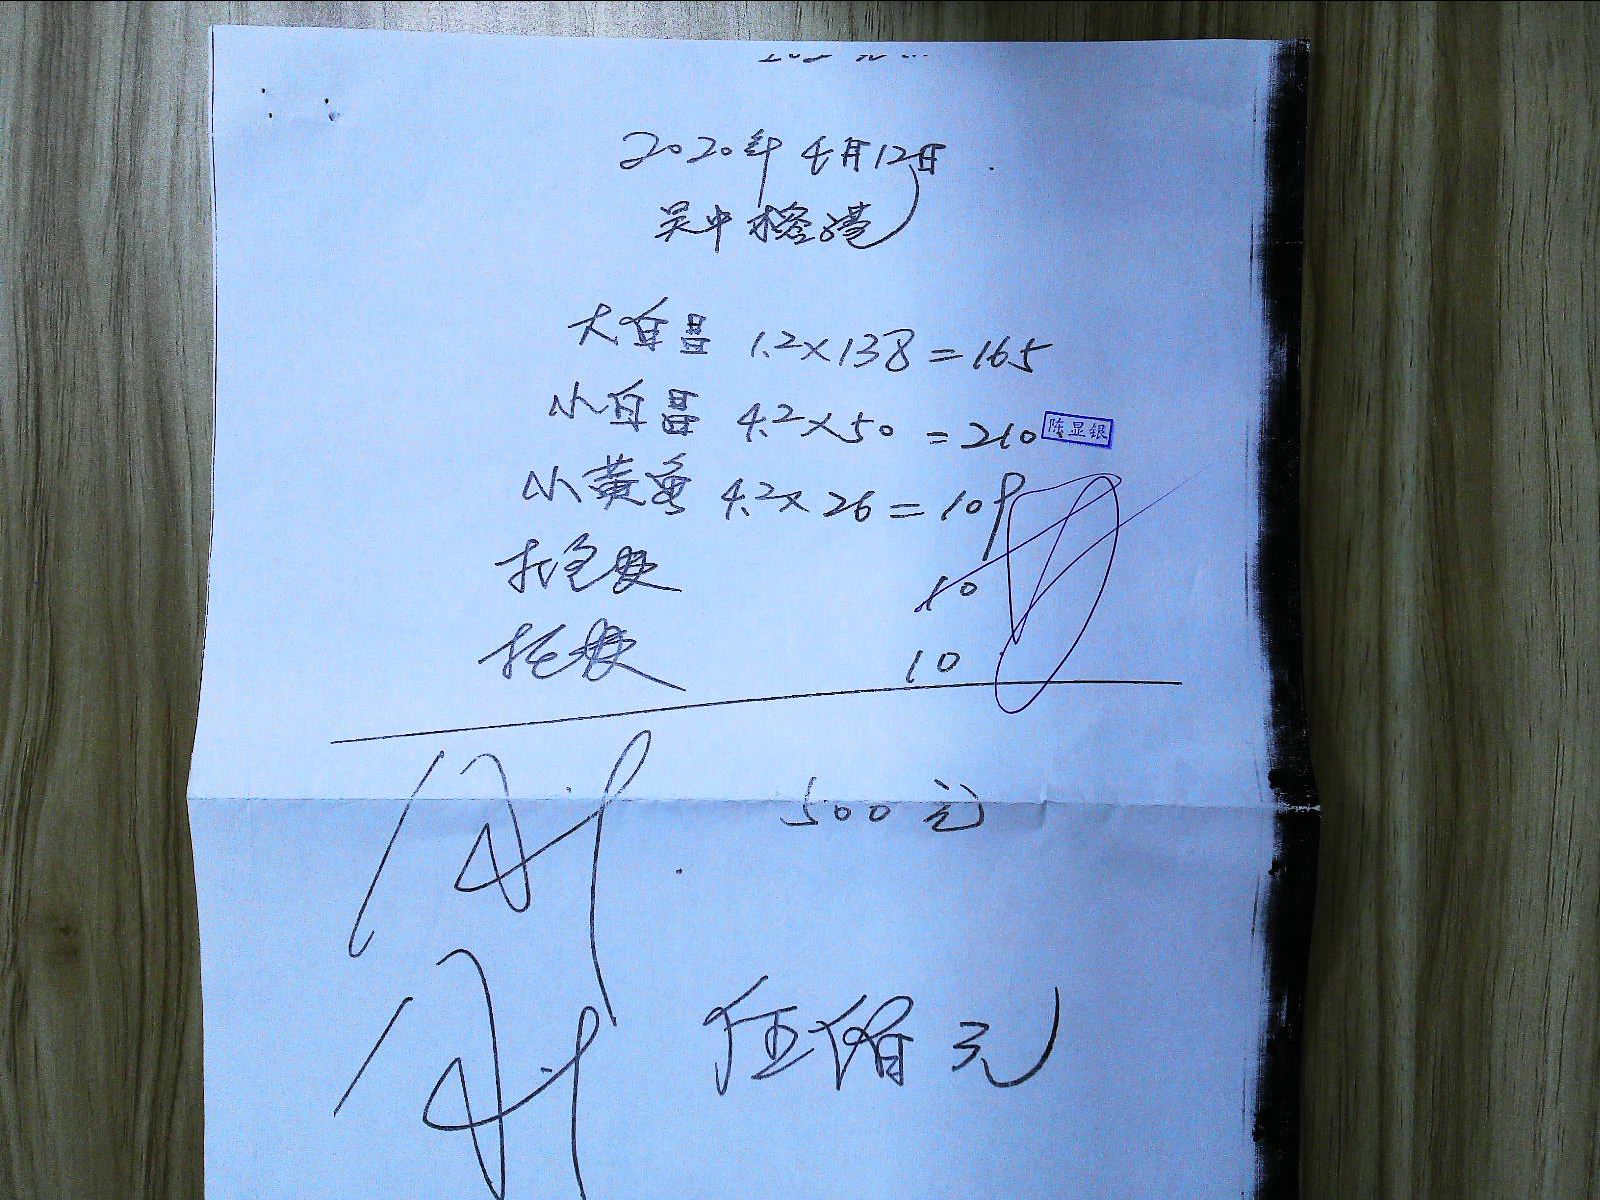 2020年4月12日
吴中榕港
大白昌 1.2×138=165
小白昌 4.2×50=210
陈显银
小黄鱼 4.2×26=109
打包费 10
托费 10
500元
伍佰元